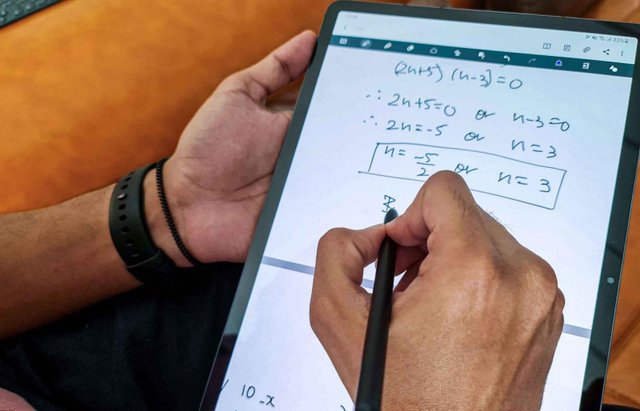 (2n+5) (n-3)=0
∴ 2n+5=0 or n-3=0
∴ 2n=-5 or n=3
n= -5/2 or n=3
10-x